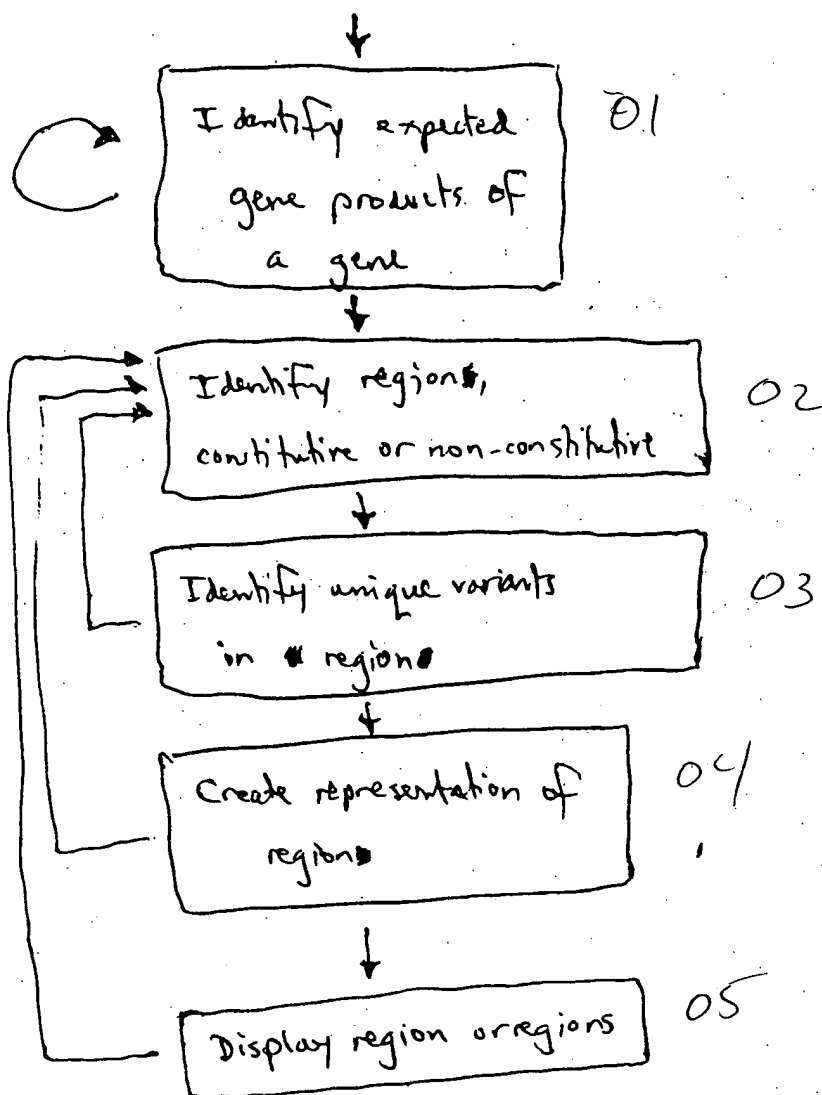 Identify expected 01
gene products of
a gene
Identify region, 02
constitutive or non-constitutive
Identify unique variants 03
in region
Create representation of 04
region
Display region or regions 05